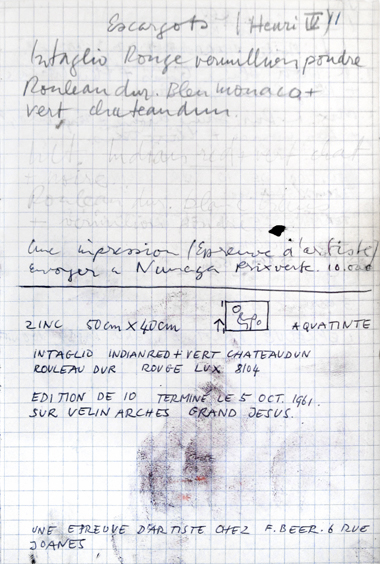 Escargots (Henri IV)
Intaglio Rouge vermillion poudre
Rouleau dur. Bleu monaco +
vert chateaudun.
Une impression (Epreuve d'artiste)
Envoyer a Numaga Prix vert. 10.000
ZINC 50cm X 40cm AQUATINTE
INTAGLIO INDIANRED + VERT CHATEAUDUN
ROULEAU DUR ROUGE LUX 8104
EDITION DE 10 TERMINE LE 5 OCT. 1961.
SUR VELIN ARCHES GRAND JESUS.
UNE EPREUVE D'ARTISTE CHEZ F. BEER. 6 RUE
JOANES.